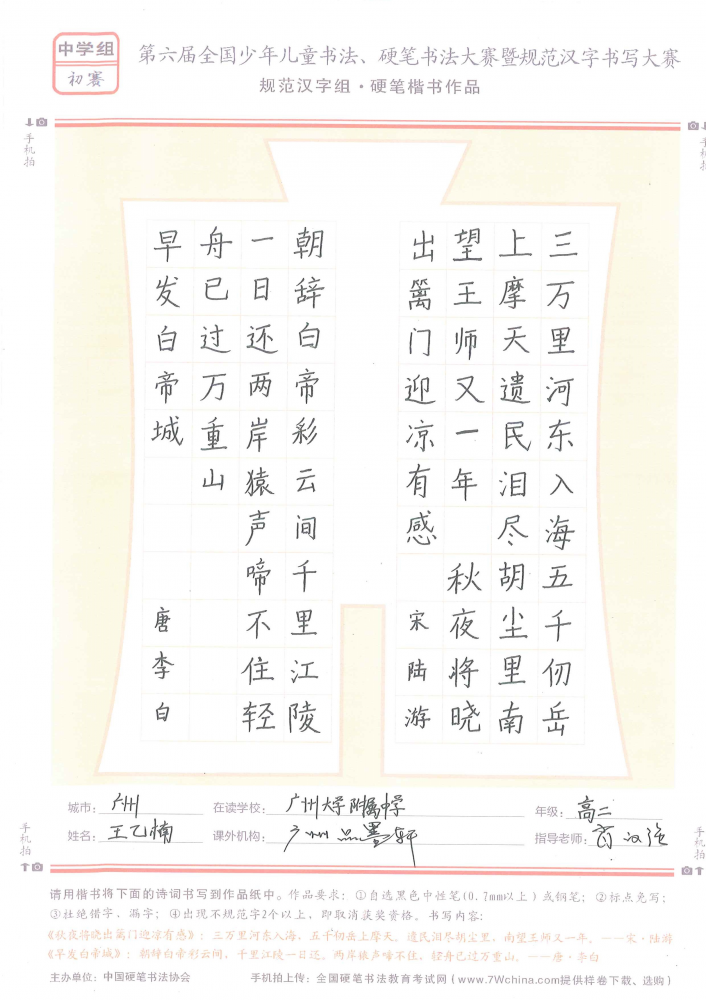 中学组
初赛
第六届全国少年儿童书法、硬笔书法大赛暨规范汉字书写大赛
规范汉字组·硬笔楷书作品
手机拍
手机拍
三万里河东入海五千仞岳
上摩天遗民泪尽胡尘里南
望王师又一年 秋夜将晓
出篱门迎凉有感 宋陆游
朝辞白帝彩云间千里江陵
一日还两岸猿声啼不住轻
舟已过万重山
早发白帝城 唐李白
城市：广州 在读学校：广州大学附属中学 年级：高二
姓名：王乙楠 课外机构：广州品墨轩 指导老师：
手机拍
手机拍
请用楷书将下面的诗词书写到作品纸中。作品要求：①自选黑色中性笔(0.7mm以上)或钢笔；②标点免写；
③杜绝错字、漏字；④出现不规范字2个以上，即取消获奖资格。书写内容：
《秋夜将晓出篱门迎凉有感》：三万里河东入海，五千仞岳上摩天。遗民泪尽胡尘里，南望王师又一年。——宋·陆游
《早发白帝城》：朝辞白帝彩云间，千里江陵一日还。两岸猿声啼不住，轻舟已过万重山。——唐·李白
主办单位：中国硬笔书法协会 手机拍上传：全国硬笔书法教育考试网（www.7Wchina.com提供样卷下载、选购）